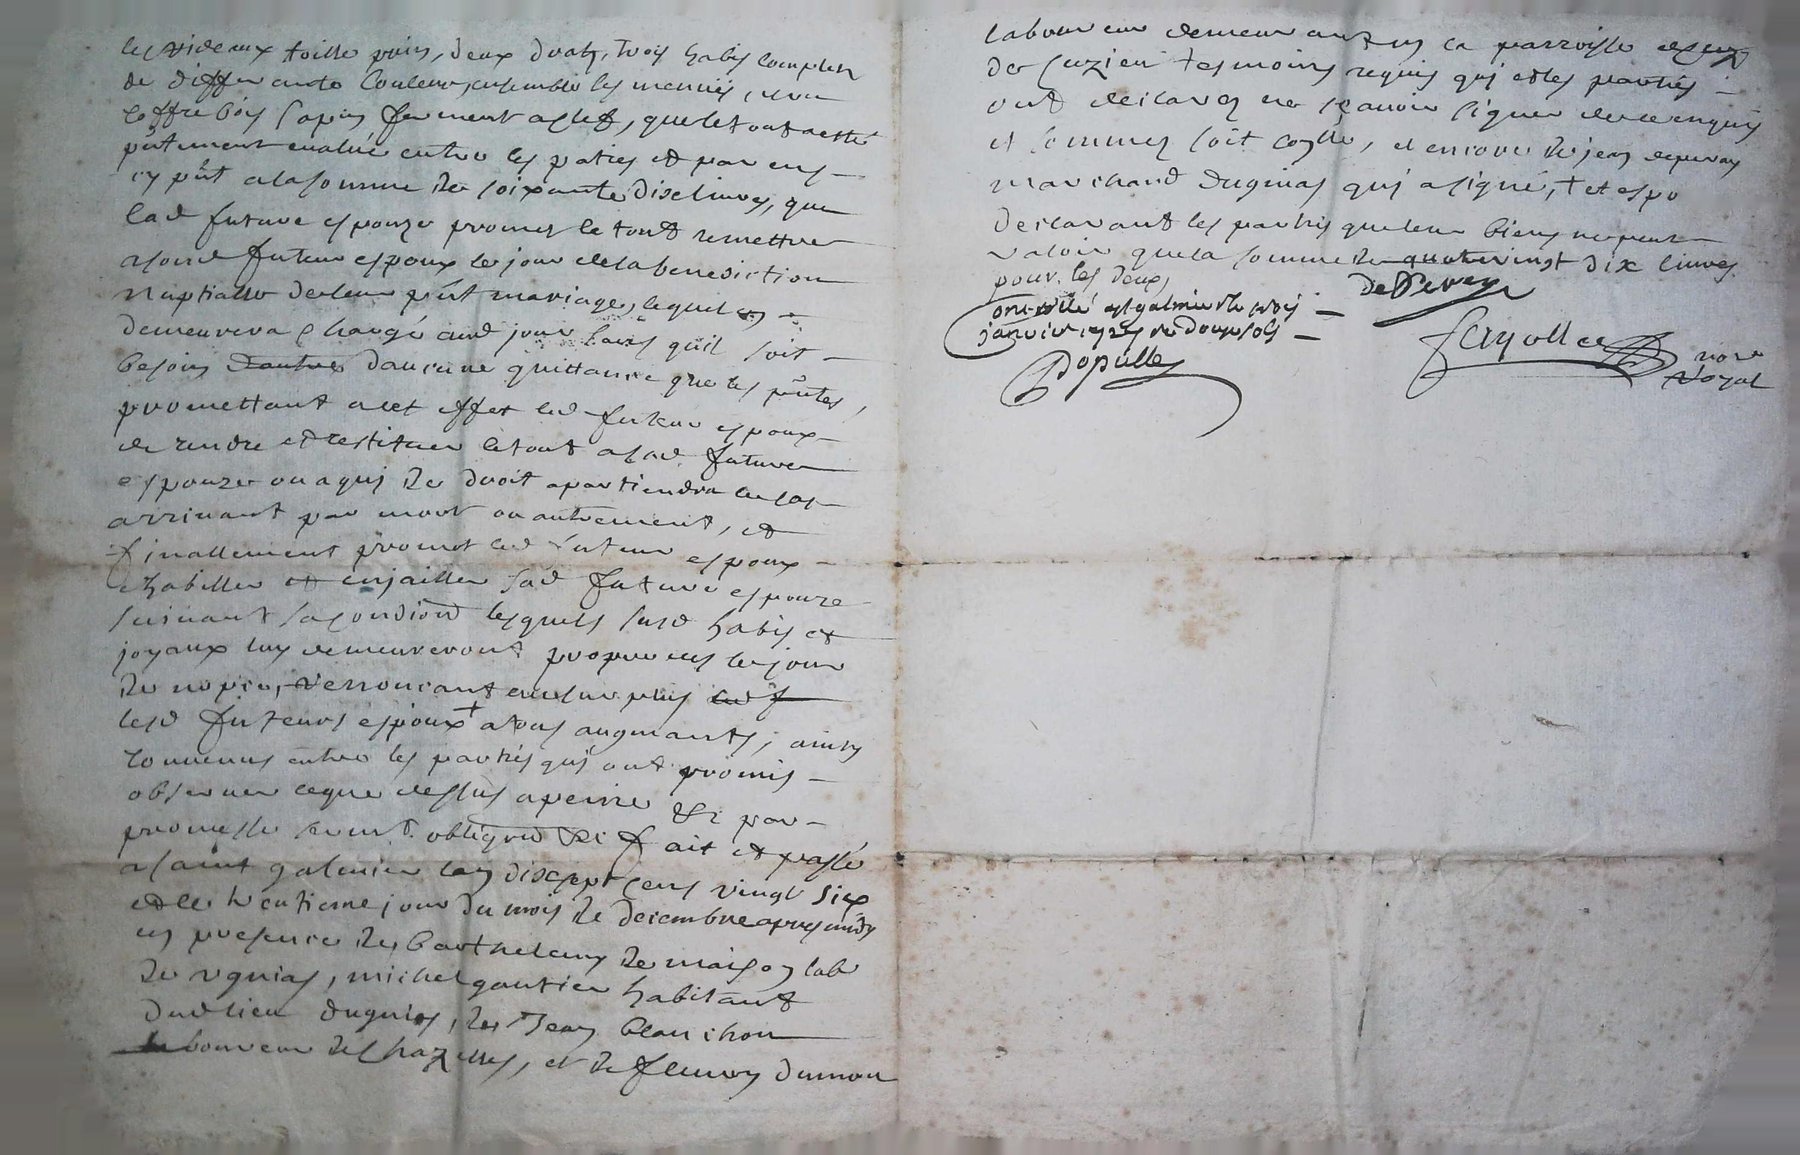 les rideaux toille peins, deux draps, trois habis complets
de differante couleur, ensemble les menues, un
coffre bois sapin ferment a clef, que le tout a esté
pñtement evalué entre les paties et par eux
cy pñt a la somme de soixante dix livres, que
lad future espouze promet le tout remettre
a sond futeur espoux le jour de la benediction
nuptialle de leur pñt mariage, lequel en
demeurera chargé aud jour sans quil soit
besoin dautres daucune quittance que les pñtes,
promettant a cet effet led futeur espoux
de rendre et restituer le tout a lad future
espouze ou a qui de droit apartiendra le cas
arrivant par mort ou autrement, et
finallement promet led futeur espoux
habiller et enjailler sad future espouze
suivant sa condiõn lesquels susd habis et
joyaux luy demeureront propre des le jour
de nopce, renonceant au surplus led f
lesd futeurs espoux + a tous augmants, ainsy
convenus entre les parties qui ont promis
observer ceque dessus a peine &c par
promesse serment obligaõn &c fait et passé
a saint galmier lan dix sept cens vingt six
et le trentieme jour du mois de decembre apres midy
en presence de barthelemy de maison lab
de ugnias, michel gautier habitant
dud lieu dugnias, de Jean blanchon
laboureur de chazelles, et de fleury dumon
laboureur demeurant en la parroisse
de cuzieu tesmoins requis qui et les parties
ont declarez ne scavoir signer de ce enquis
et sommez soit conllé, et encore de jean deperay
marchand dugnias qui a signé, + et espo
declarant les parties que leur biens ne peut
valoir que la somme de quatrevingt dix livres
pour les deux,
Conllé a st galmier le trois
janvier 1727 re douze sols
Populle
DePerey
fayolle
nore
Royal